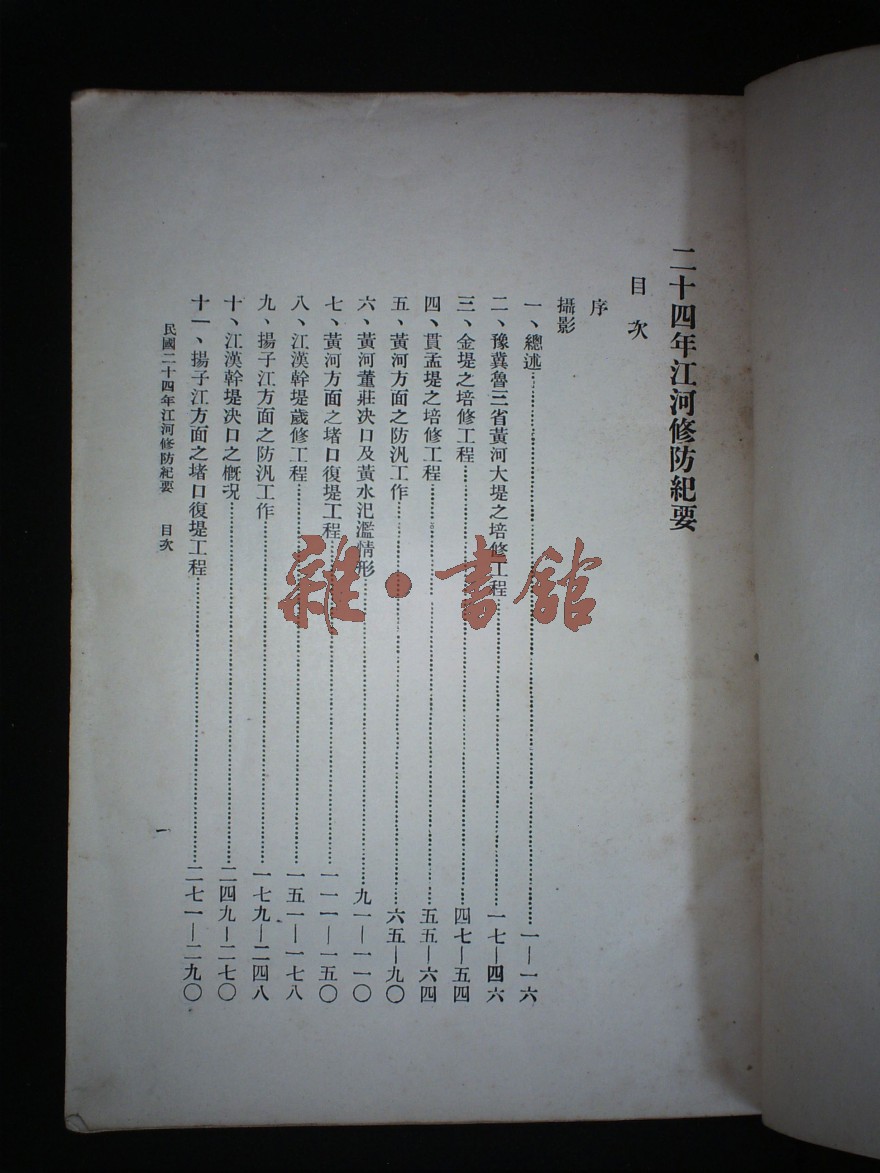 二十四年江河修防紀要
目次
序
攝影
一、總述……一—一六
二、豫冀魯三省黃河大堤之培修工程……一七—四六
三、金堤之培修工程……四七—五四
四、貫孟堤之培修工程……五五—六四
五、黃河方面之防汎工作……六五—九〇
六、黃河董莊決口及黃水氾濫情形……九一—一一〇
七、黃河方面之堵口復堤工程……一一一—一五〇
八、江漢幹堤歲修工程……一五一—一七八
九、揚子江方面之防汎工作……一七九—二四八
十、江漢幹堤決口之概況……二四九—二七〇
十一、揚子江方面之堵口復堤工程……二七一—二九〇
民國二十四年江河修防紀要 目次
一
雜·書館